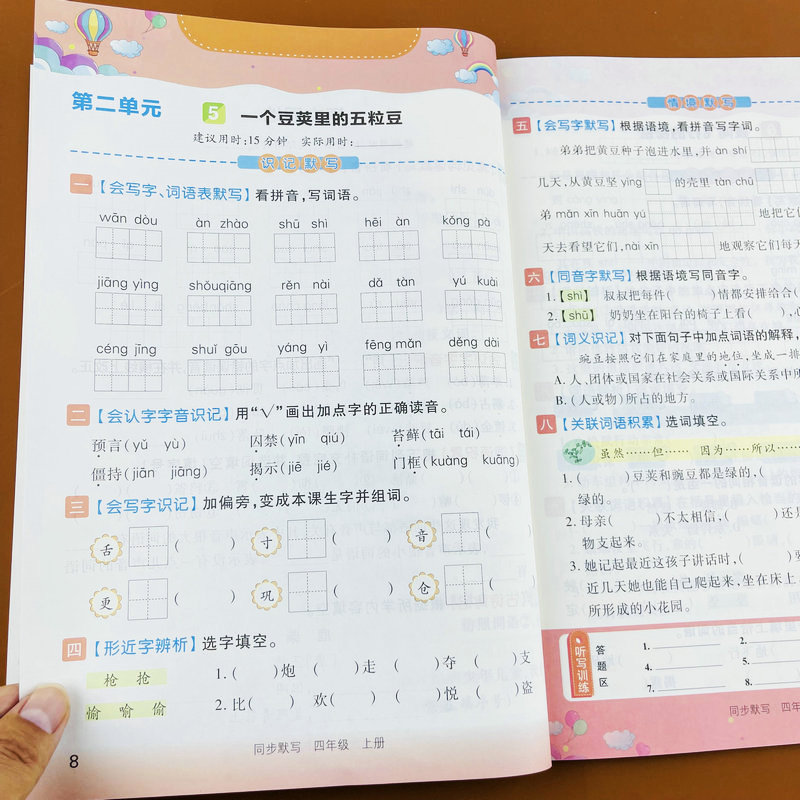 第二单元
5 一个豆荚里的五粒豆
建议用时:15分钟 实际用时:
识记默写
一【会写字、词语表默写】看拼音,写词语。
wān dòu àn zhào shū shì hēi àn kǒng pà
jiāng yìng shǒuqiāng rěn nài dǎ tàn yú kuài
céng jīng shuǐ gōu yáng yì fēng mǎn děng dài
二【会认字字音识记】用“√”画出加点字的正确读音。
预言(yǔ yù) 囚禁(yīn qiú) 苔藓(tāi tái)
僵持(jiān jiāng) 揭示(jiē jié) 门框(kuàng kuāng)
三【会写字识记】加偏旁,变成本课生字并组词。
舌 ( ) 寸 ( ) 音 ( )
更 ( ) 巩 ( ) 仓 ( )
四【形近字辨析】选字填空。
枪 抢 1. ( )炮 ( )走 ( )夺 ( )支
愉 喻 偷 2. 比( ) 欢( ) ( )悦 ( )盗
同步默写 四年级 上册
8
情境默写
五【会写字默写】根据语境,看拼音写字词。
弟弟把黄豆种子泡进水里,并 àn shí
几天,从黄豆坚 yìng 的壳里 tàn chū
弟 mǎn xīn huān yú 地把它们
天去看望它们, nài xīn 地观察它们每天
六【同音字默写】根据语境写同音字。
1.【shì】 叔叔把每件( )情都安排给合(
2.【shū】 奶奶坐在阳台的椅子上看( ),心
七【词义识记】对下面句子中加点词语的解释,
豌豆按照它们在家庭里的地位,坐成一排
A. 人、团体或国家在社会关系或国际关系中所
B. (人或物)所占的地方。
八【关联词语积累】选词填空。
虽然……但…… 因为……所以……
1. ( )豆荚和豌豆都是绿的,(
绿的。
2. 母亲( )不太相信,( )还是
物支起来。
3. 她记起最近这孩子讲话时,( )要
近几天她也能自己爬起来,坐在床上
所形成的小花园。
听写训练
答题区
1. 2.
4. 5.
7. 8.
同步默写 四年